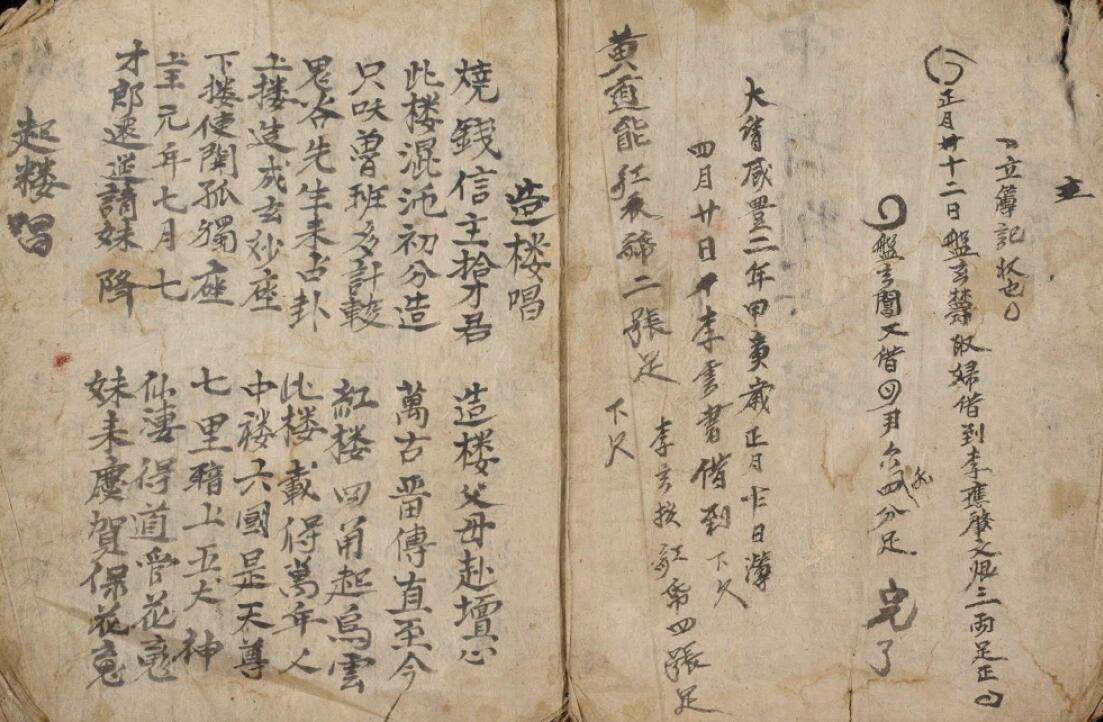 立
立簿記狀也
正月廿十二日盤玄禁取婦借到李應肇文艮三兩足正
盤玄閏文借四月六四分足 完了
大清咸豐二年甲寅歲正月廿日簿
四月廿日李雲書借到下欠
黃道能紅衣號二張足 下欠
李玄 紅 四張足
造楼唱
燒錢信主搶才君 造楼父母赴壇心
此楼混沌初分造 萬古畄傳直至今
只吹魯班多計較 紅楼四角起烏雲
鬼谷先生来占卦 此楼載得萬年人
上楼造成玄妙座 中楼六國是天尊
下楼使開孤獨座 七里 上五犬神
上元年七月七 仙凄得道管花
才郎還送請妹降 妹来慶賀保花
起楼唱